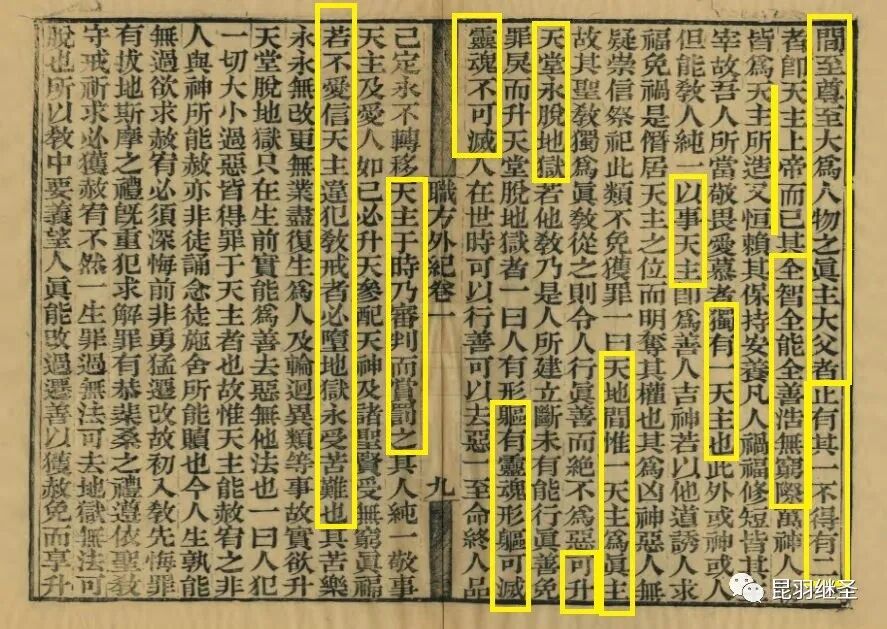 間至尊至大爲人物之眞主大父者止有其一不得有二
者卽天主上帝而已其全智全能全善浩無窮際萬神人
皆爲天主所造又恒賴其保持安養凡人禍福修短皆其
宰故吾人所當敬畏愛慕者獨有一天主也此外或神或人
但能敎人純一以事天主卽爲善人吉神若以他道誘人求
福免禍是僭居天主之位而明奪其權也其爲凶神惡人無
疑崇信祭祀此類不免獲罪一曰天地間惟一天主爲眞主
故其聖敎獨爲眞敎從之則令人行眞善而絶不爲惡可升
天堂永脫地獄若他敎乃是人所建立斷未有能行眞善免
罪戾而升天堂脫地獄者一曰人有形軀有靈魂形軀可滅
靈魂不可滅人在世時可以行善可以去惡一至命終人品
職方外紀卷一
九
已定永不轉移天主于時乃審判而賞罰之其人純一敬事
天主及愛人如己必升天參配天神及諸聖賢受無窮眞福
若不愛信天主違犯敎戒者必墮地獄永受苦難也其苦樂
永永無改更無業盡復生爲人及輪迴異類等事故實欲升
天堂脫地獄只在生前實能爲善去惡無他法也一曰人犯
一切大小過惡皆得罪于天主者也故惟天主能赦宥之非
人與神所能赦亦非徒誦念徒施舍所能贖也今人生孰能
無過欲求赦宥必須深悔前非勇猛遷改故初入敎先悔罪
有拔地斯摩之禮旣重犯求解罪有恭棐桑之禮遵依聖敎
守戒祈求必獲赦宥不然一生罪過無法可去地獄無法可
脫也所以敎中要義望人眞能改過遷善以獲赦免而享升
昆羽继圣